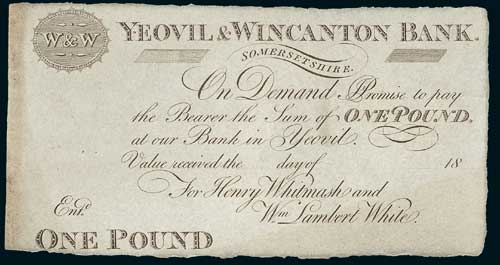 W&W
YEOVIL & WINCANTON BANK.
SOMERSETSHIRE.
On Demand I Promise to pay
the Bearer the Sum of ONE POUND,
at our Bank in Yeovil.
Value received the day of 18
For Henry Whitmash and
Wm. Lambert White.
Entd.
ONE POUND